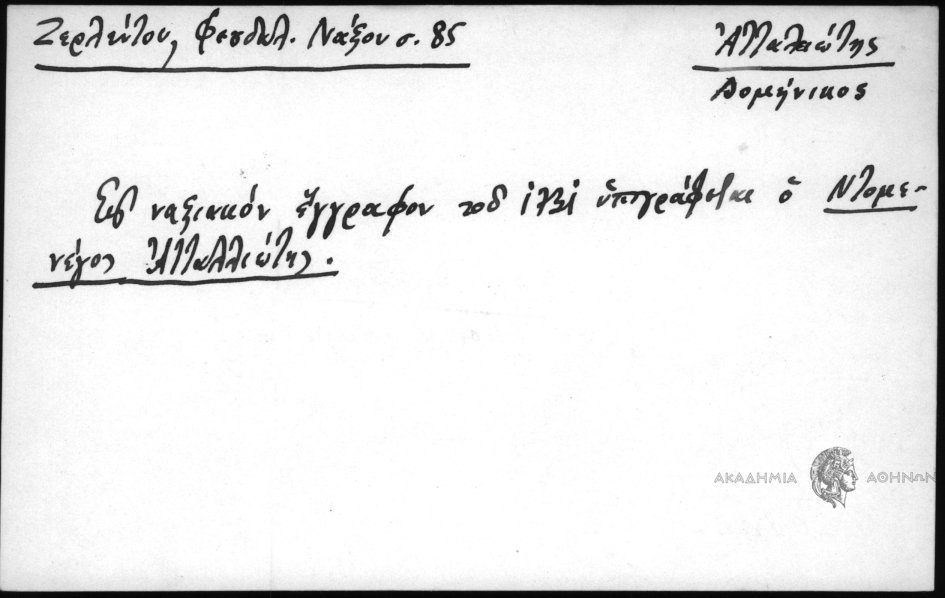 Ζερλέντου, Φεουδαλ. Νάξου σ. 85
Ἀτταλειώτης
Δομήνικος
Εἰς ναξιακὸν ἔγγραφον τοῦ 1731 ὑπογράφεται ὁ Ντομε-
νέγος Ἀτταλλιώτης.
ΑΚΑΔΗΜΙΑ ΑΘΗΝΩΝ